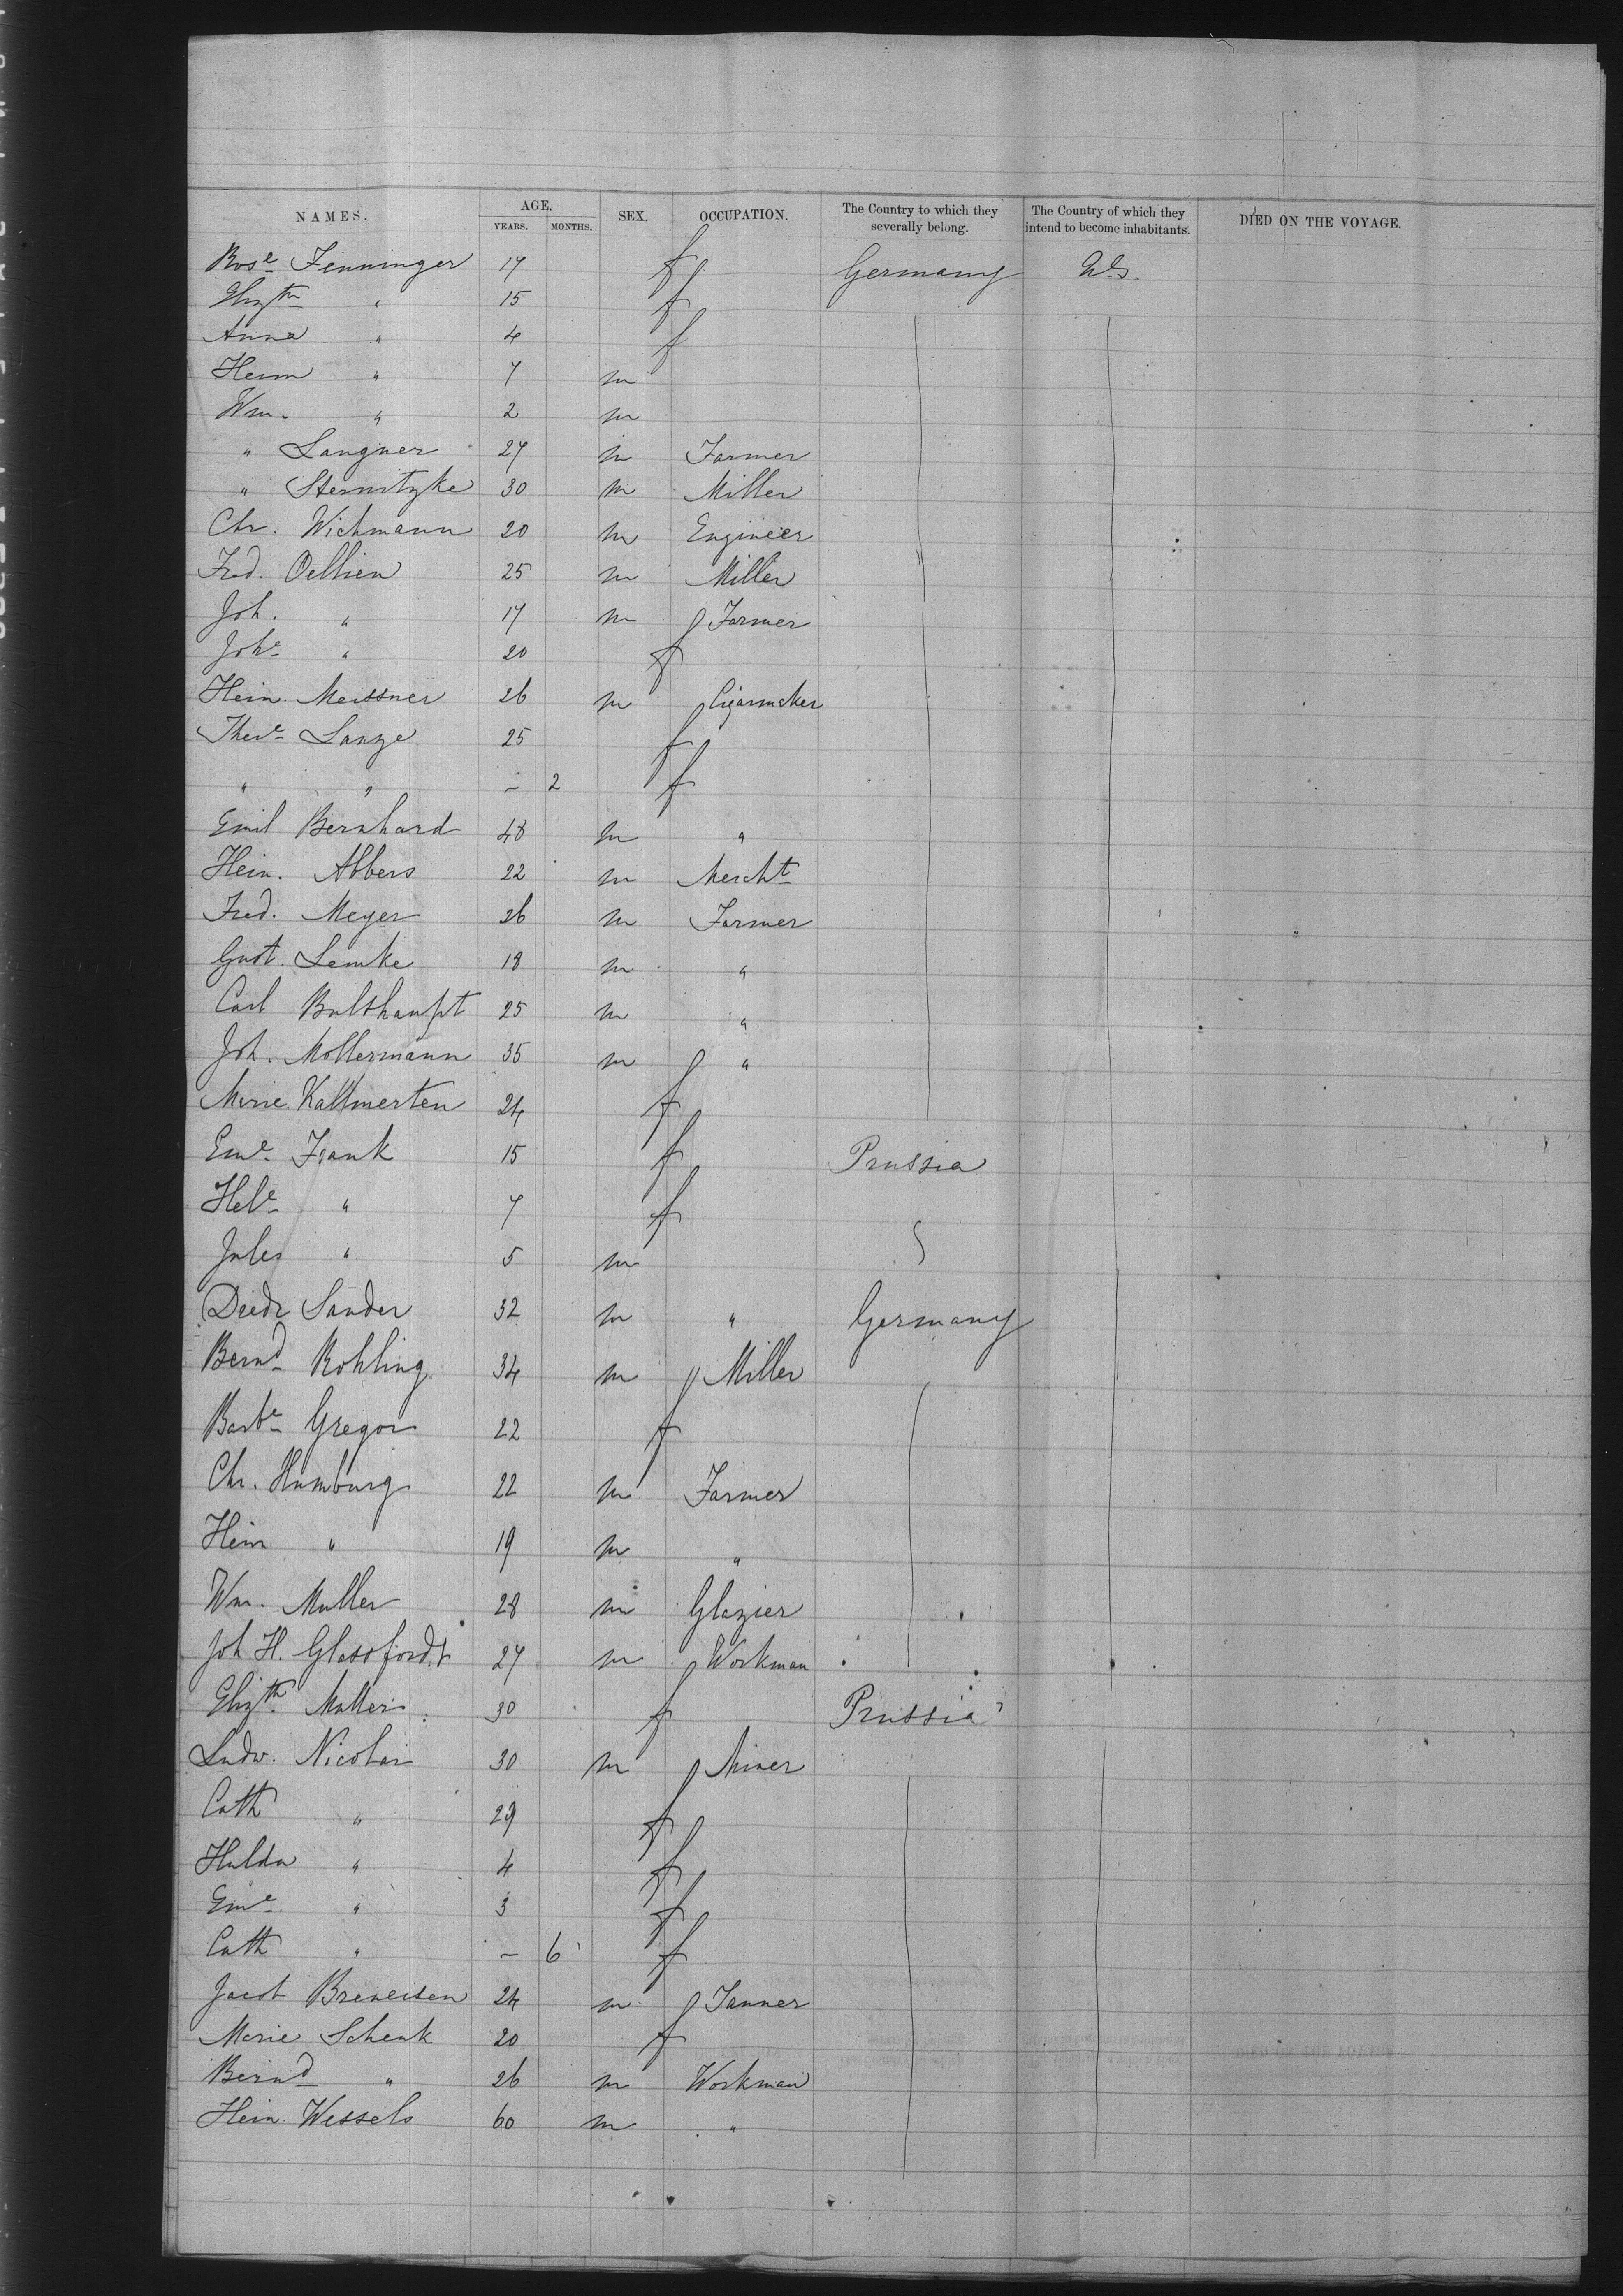 NAMES. AGE. YEARS. MONTHS. SEX. OCCUPATION. The Country to which they severally belong. The Country of which they intend to become inhabitants. DIED ON THE VOYAGE.
Rose Fenninger 17 f Germany U.S.
Elizth " 15 f
Anna " 4 f
Herm " 7 m
Wm. " 2 m
" Langner 27 m Farmer
" Sternitzke 30 m Miller
Chr. Wichmann 20 m Engineer
Fred. Oellien 25 m Miller
Joh. " 17 m Farmer
Johe " 20 f
Hein. Meissner 26 m Cigarmaker
There Lange 25 f
" " – 2 f
Emil Bernhard 48 m "
Hein. Abbers 22 m Mercht
Fred. Meyer 26 m Farmer
Gust. Lemke 18 m "
Carl Bulthaupt 25 m "
Joh. Mollermann 35 m "
Marie Kattmerten 24 f
Eme Frank 15 f Prussia
Hele " 7 f
Jules " 5 m
Diedr Sander 32 m " Germany
Bernd Rohling 34 m Miller
Barbe Gregor 22 f
Chr. Humburg 22 m Farmer
Hein " 19 m "
Wm. Muller 28 m Glazier
Joh H. Glassfordt 27 m Workman
Elizth Muller 30 f Prussia
Ludw. Nicolai 30 m Miner
Cath " 29 f
Hulda " 4 f
Eme " 3 f
Cath " – 6 f
Jacob Breneisen 24 m Tanner
Marie Schenk 20 f
Bernd " 26 m Workman
Hein. Wessels 60 m "